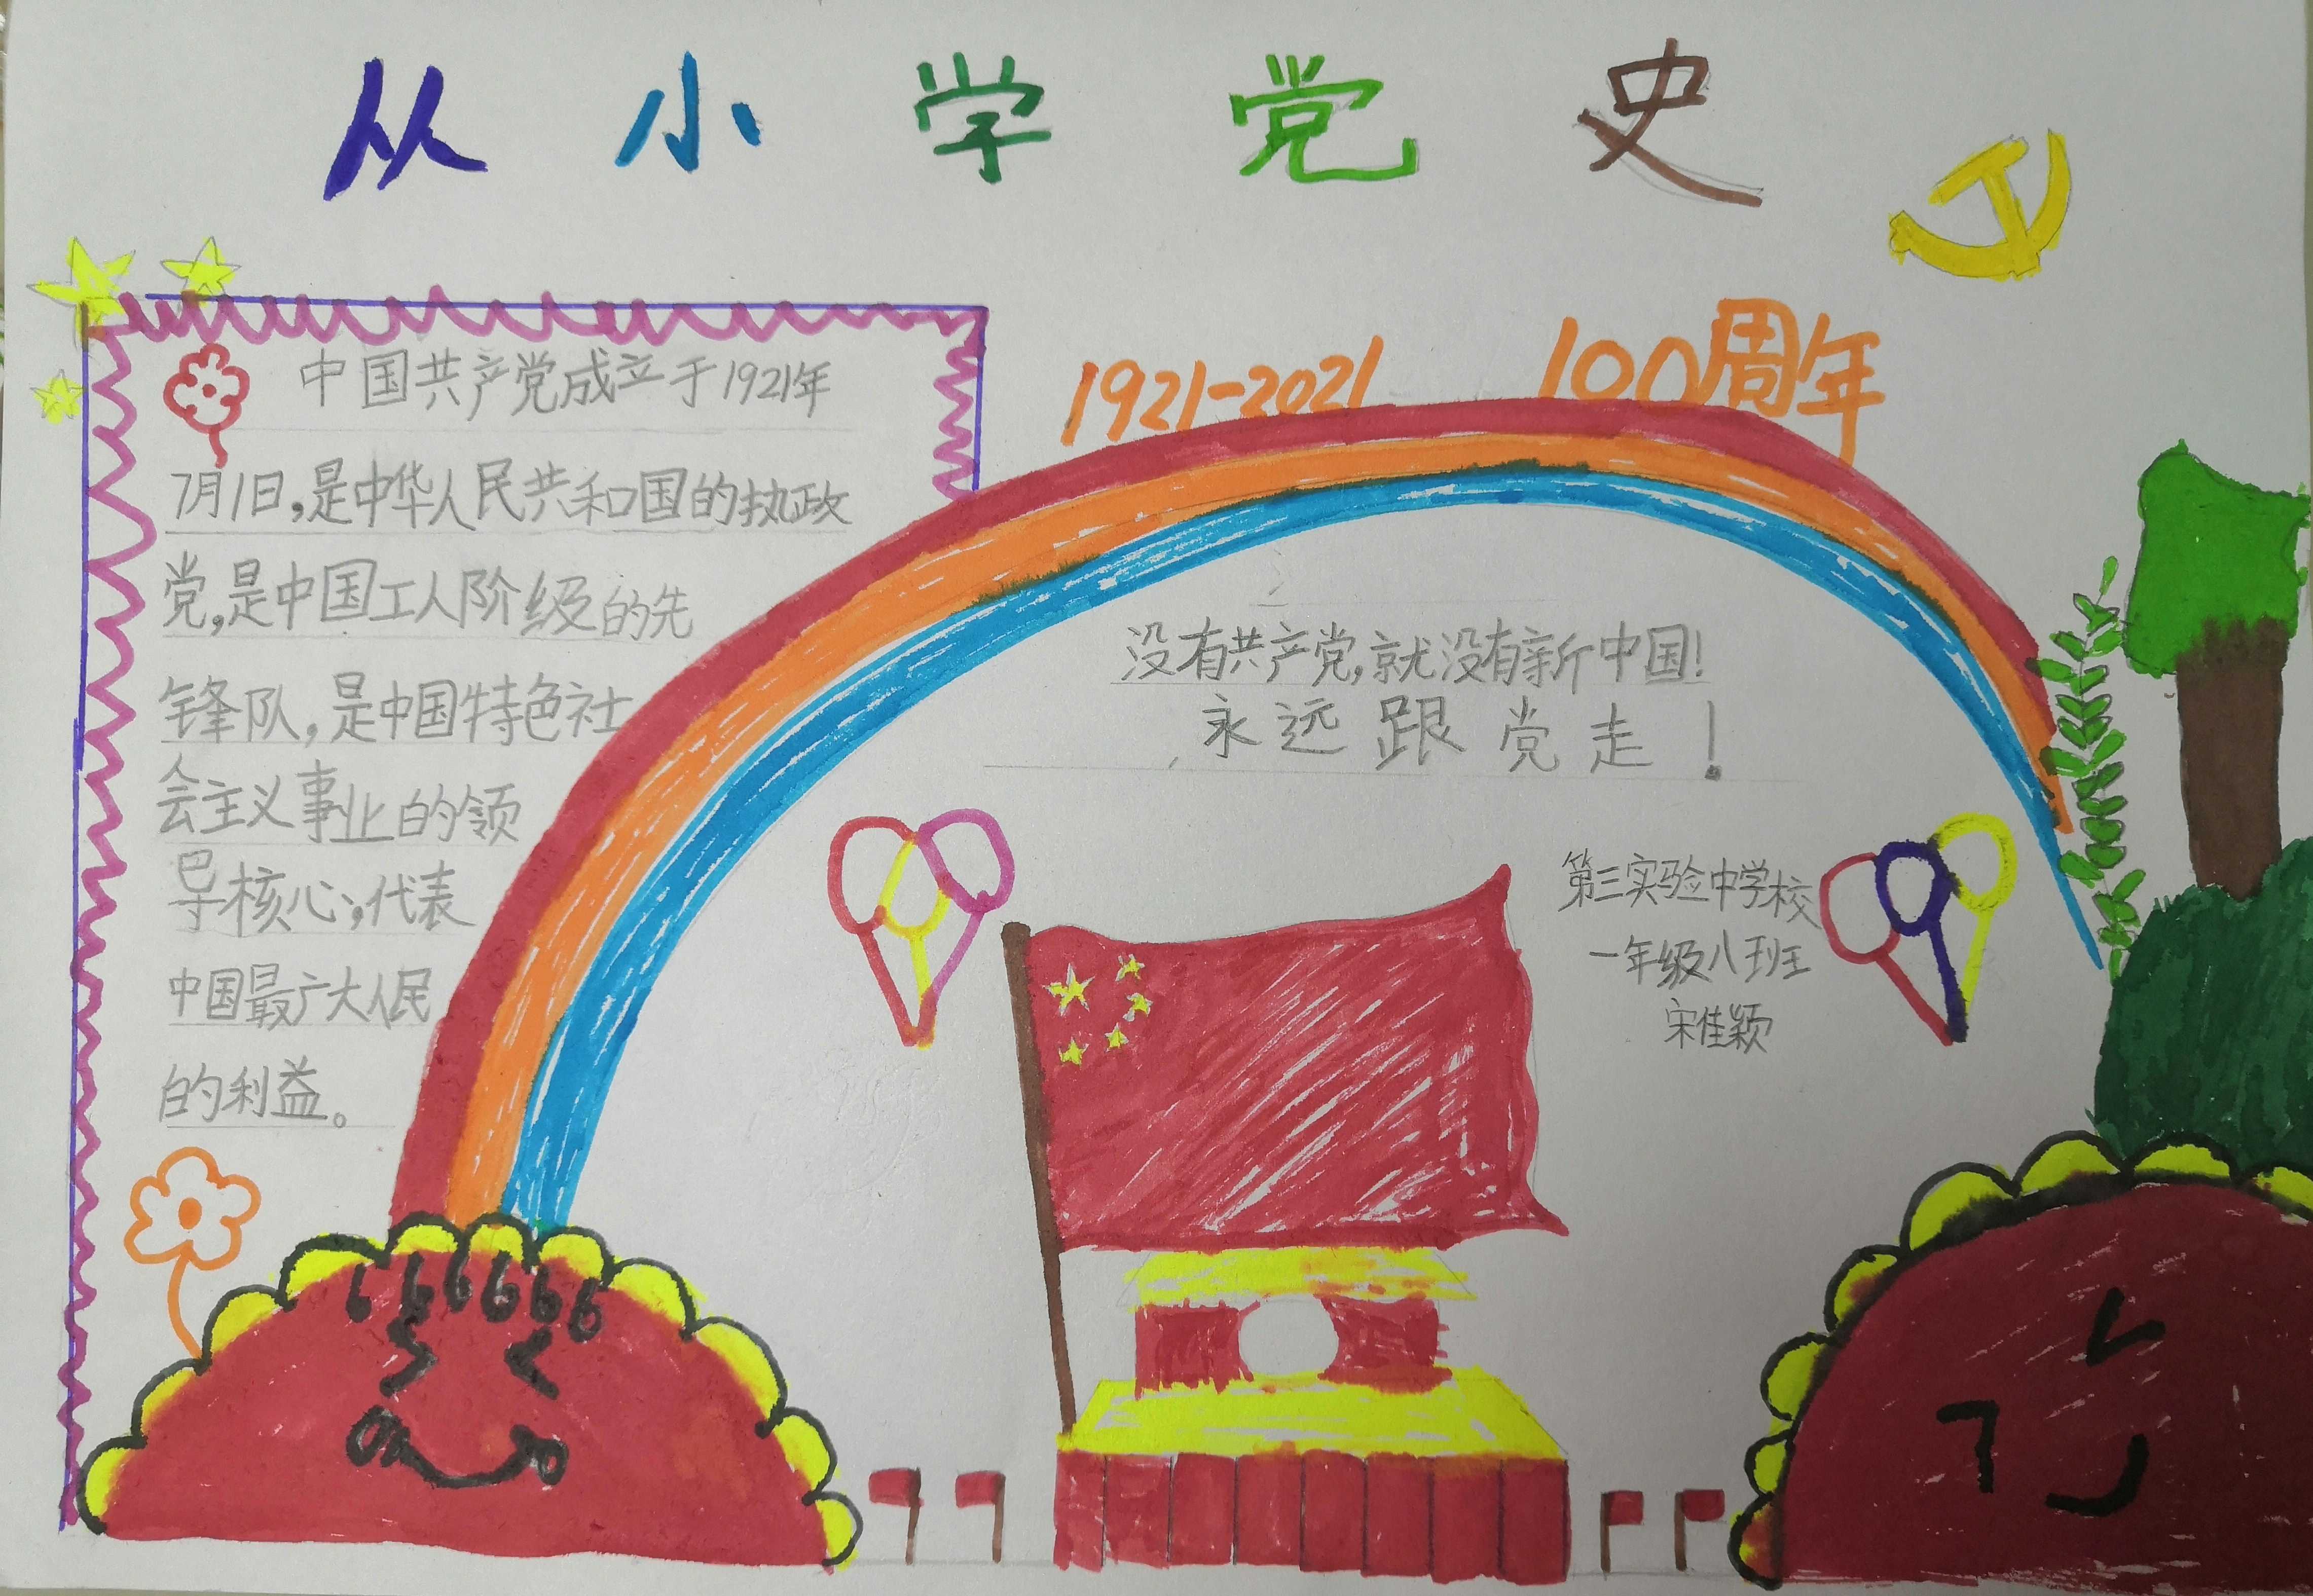 从小学党史
1921-2021 100周年
中国共产党成立于1921年
7月1日,是中华人民共和国的执政
党,是中国工人阶级的先
锋队,是中国特色社
会主义事业的领
导核心,代表
中国最广大人民
的利益。
没有共产党,就没有新中国!
永远跟党走!
第三实验中学校
一年级八班
宋佳颖